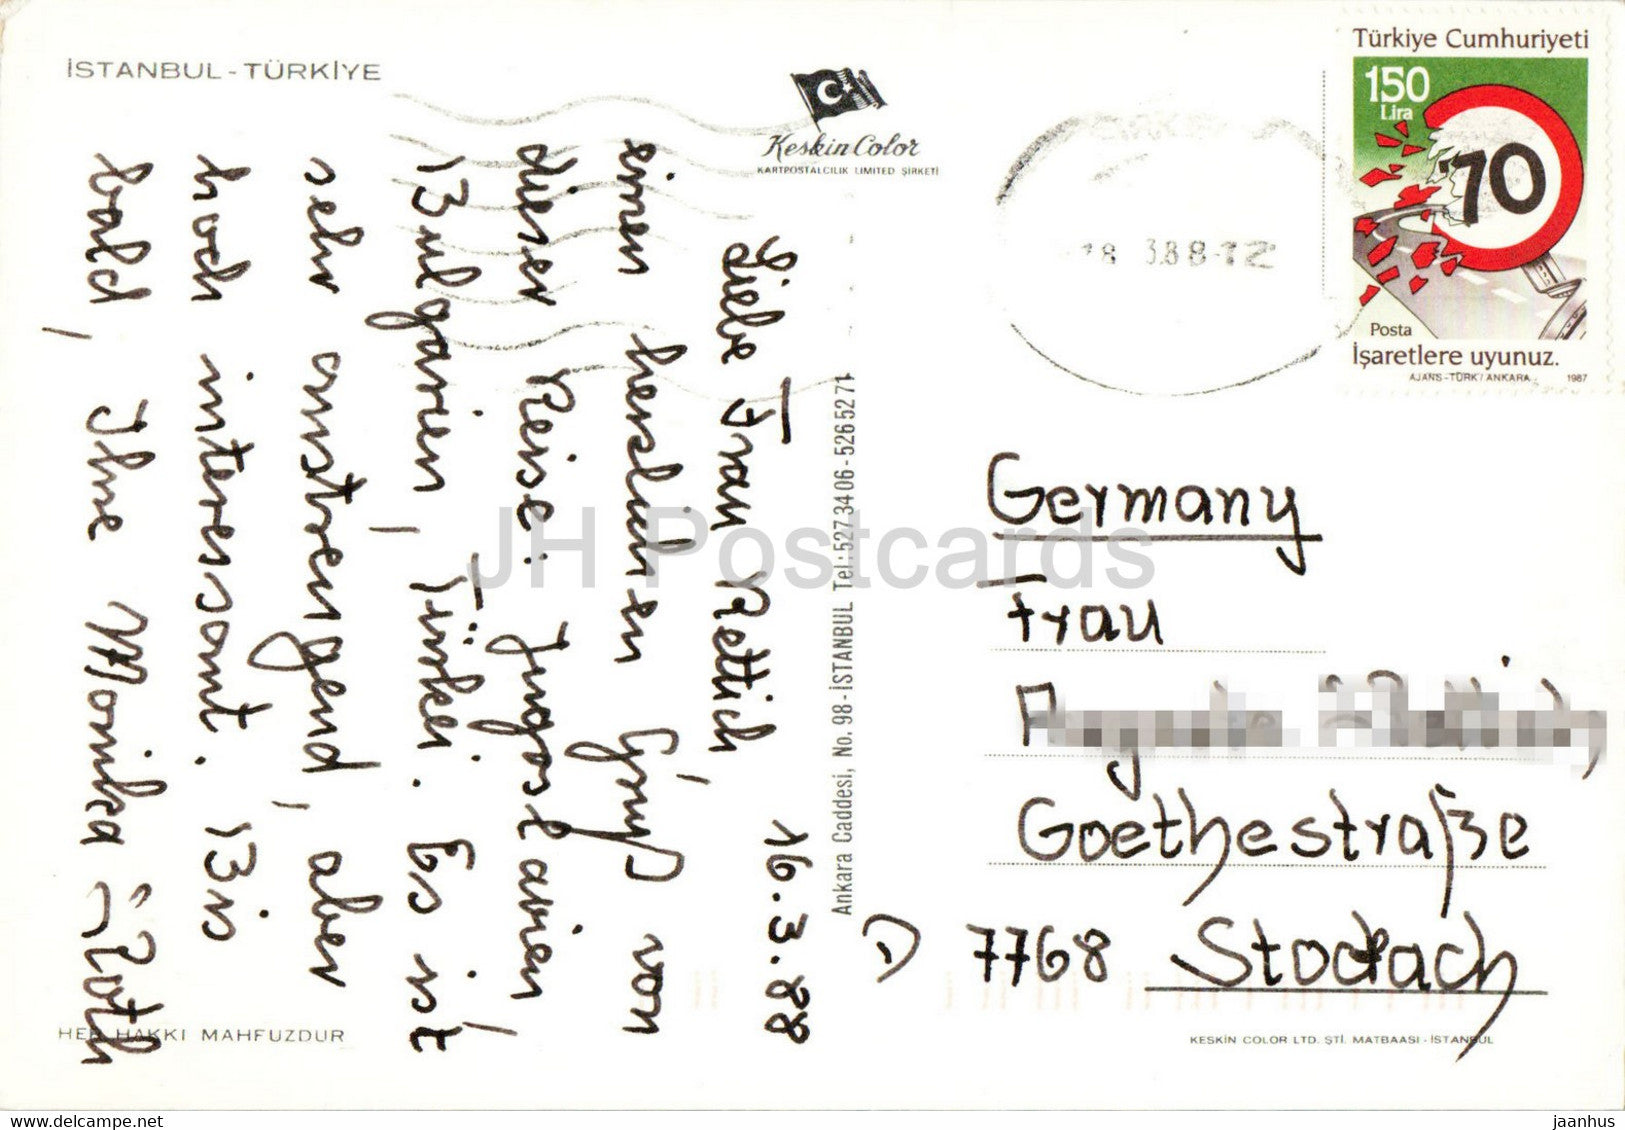 İSTANBUL - TÜRKİYE
Keskin Color
KARTPOSTALCILIK LIMITED ŞİRKETİ
16.3.88
Liebe Frau Rettich,
einen herzlichen Gruß von
dieser Reise: Jugoslavien,
Bulgarien, Türkei. Es ist
sehr anstrengend, aber
hoch interessant. Bis
bald, Ihre Monika Roth
HER HAKKI MAHFUZDUR
Ankara Caddesi, No. 98 - İSTANBUL Tel: 527 34 06 - 526 52 71
Türkiye Cumhuriyeti
150
Lira
70
Posta
İşaretlere uyunuz.
AJANS-TÜRK / ANKARA 1987
18 3.88-12
Germany
Frau
Goethestraße
D 7768 Stockach
KESKİN COLOR LTD. ŞTİ. MATBAASI - İSTANBUL
JH Postcards
delcampe.net
jaanhus